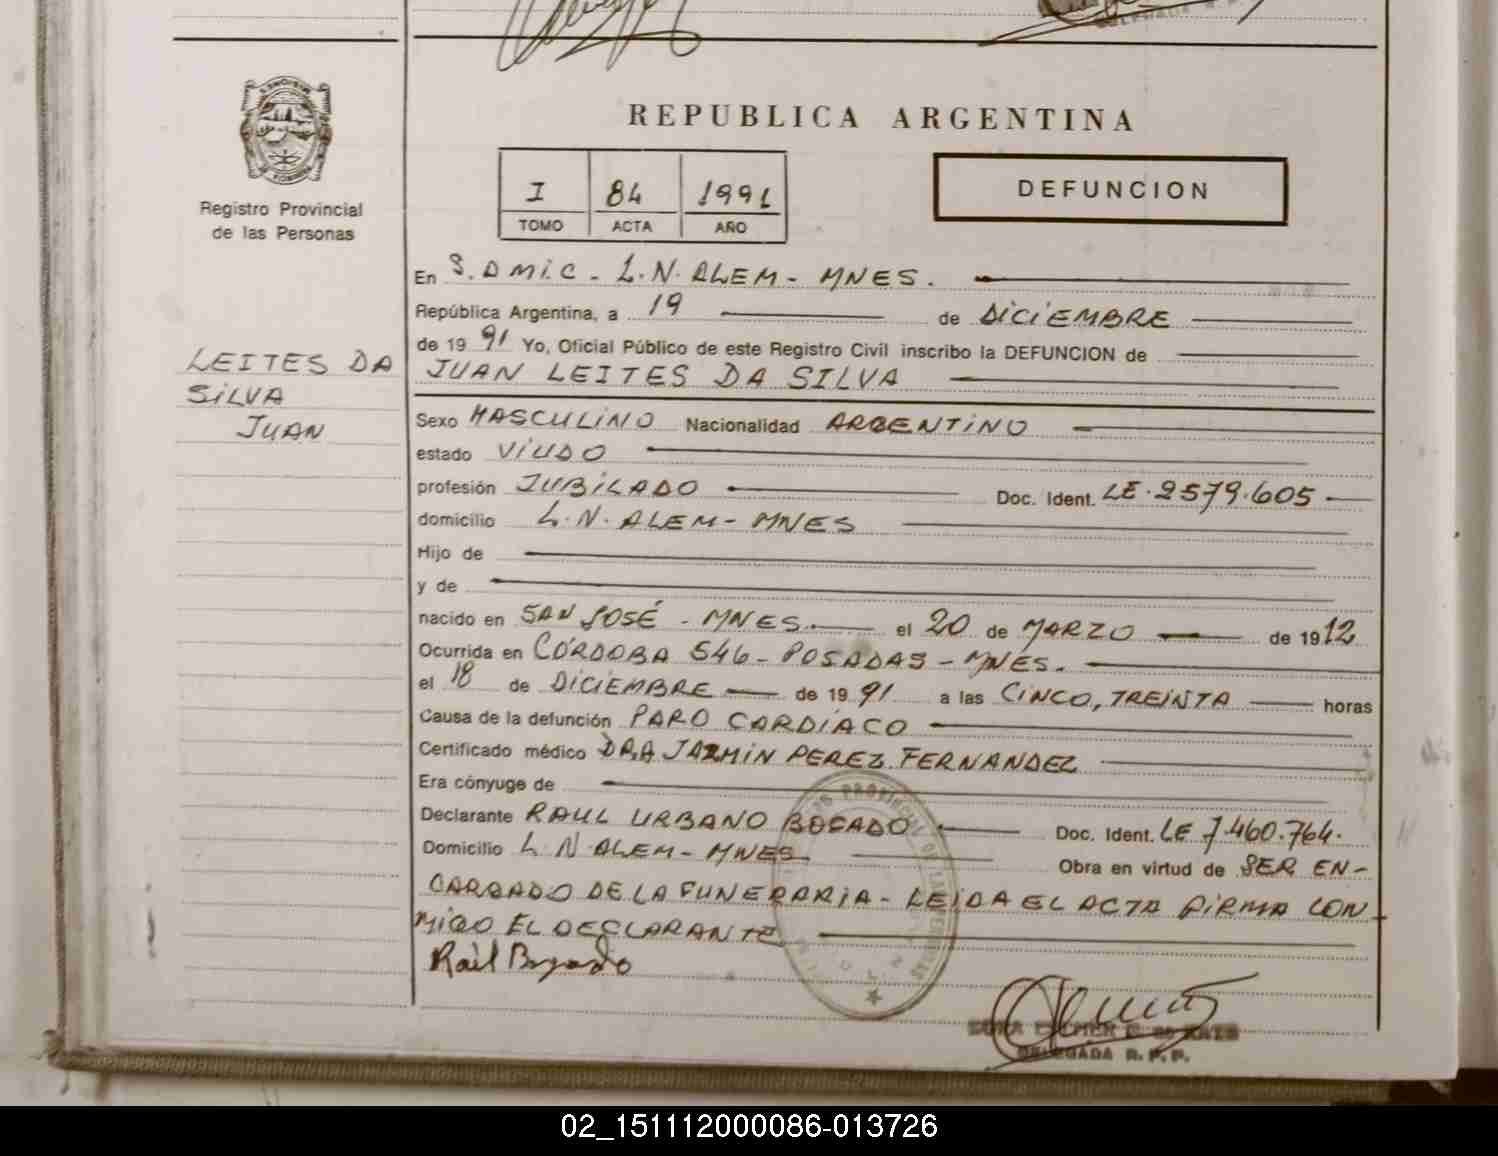 REPUBLICA ARGENTINA
I 84 1991
TOMO ACTA AÑO
DEFUNCION
Registro Provincial
de las Personas
LEITES DA
SILVA
JUAN
En S. DMIC - L.N. ALEM - MNES.
República Argentina, a 19 de DICIEMBRE
de 19 91 Yo, Oficial Público de este Registro Civil inscribo la DEFUNCION de
JUAN LEITES DA SILVA
Sexo MASCULINO Nacionalidad ARGENTINO
estado VIUDO
profesión JUBILADO Doc. Ident. LE. 2579.605
domicilio L.N. ALEM - MNES
Hijo de
y de
nacido en SAN JOSÉ - MNES. el 20 de MARZO de 1912
Ocurrida en CÓRDOBA 546 - POSADAS - MNES.
el 18 de DICIEMBRE de 19 91 a las CINCO, TREINTA horas
Causa de la defunción PARO CARDÍACO
Certificado médico DRA JAZMIN PEREZ FERNANDEZ
Era cónyuge de
Declarante RAUL URBANO BOGADO Doc. Ident. LE 7.460.764.
Domicilio L N ALEM - MNES Obra en virtud de SER EN-
CARGADO DE LA FUNERARIA - LEIDA EL ACTA FIRMA CON
MIGO EL DECLARANTE
Raúl Bogado
DELEGADA R. P. P.
02_151112000086-013726